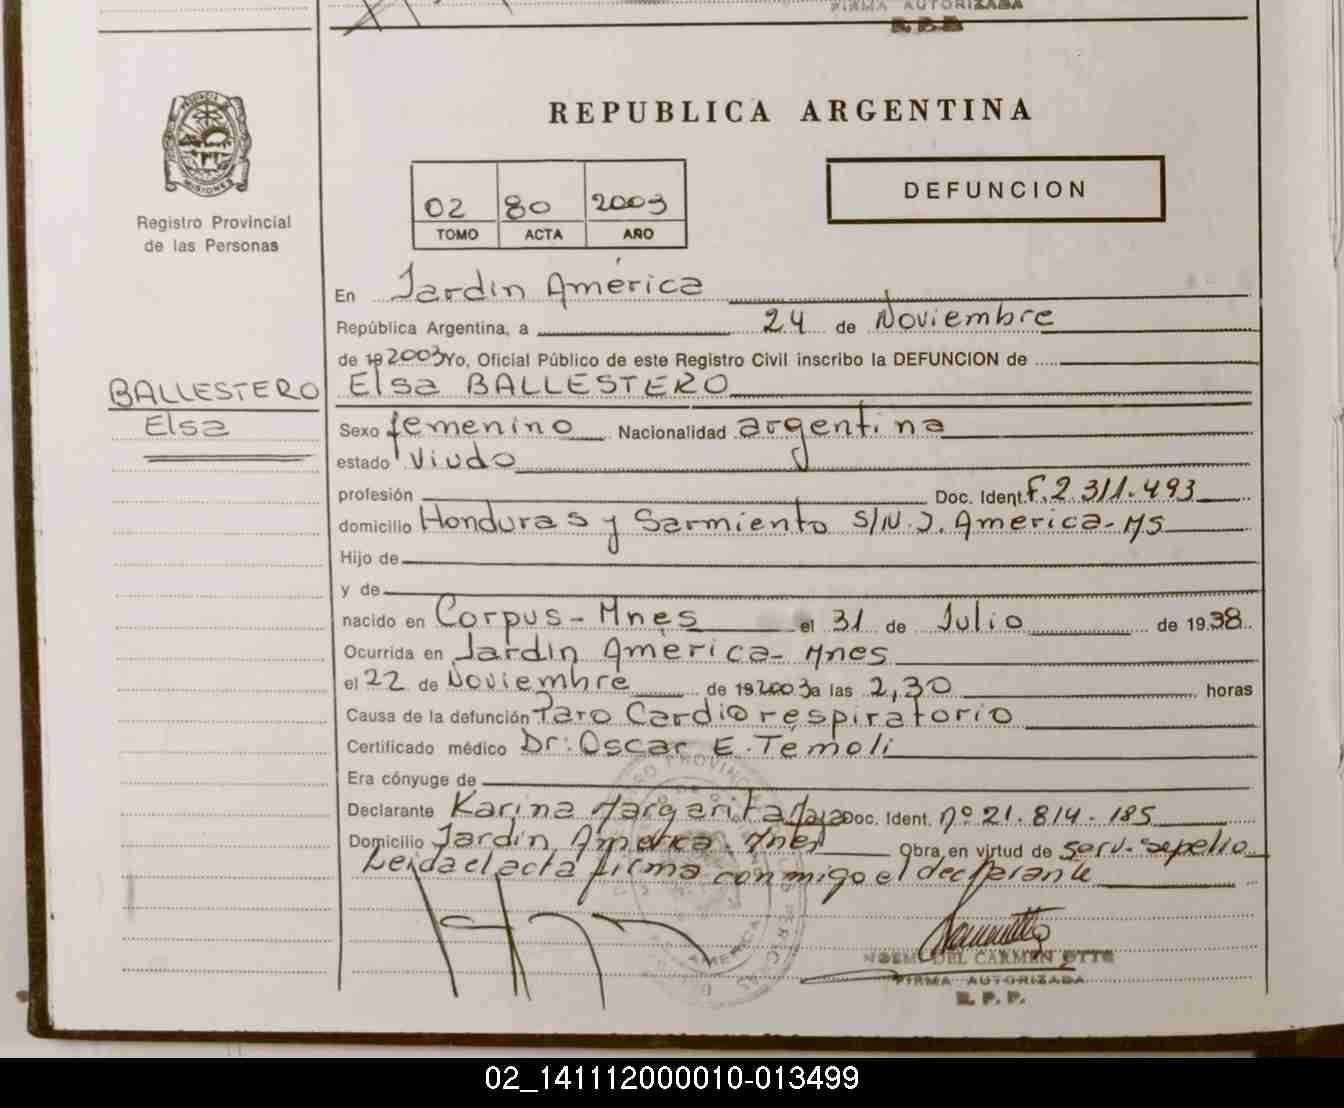 FIRMA AUTORIZADA
REPUBLICA ARGENTINA
PROVINCIA DE
MISIONES
Registro Provincial
de las Personas
02 80 2003
TOMO ACTA AÑO
DEFUNCION
En Jardín América
República Argentina, a 24 de Noviembre
de 19 2003 Yo, Oficial Público de este Registro Civil inscribo la DEFUNCION de
BALLESTERO
Elsa
Elsa BALLESTERO
Sexo femenino Nacionalidad argentina
estado Viudo
profesión Doc. Ident. F. 2.311.493
domicilio Honduras y Sarmiento S/N. J. America-MS
Hijo de
y de
nacido en Corpus-Mnes el 31 de Julio de 1938
Ocurrida en Jardín América-Mnes
el 22 de Noviembre de 19 2003 a las 2,30 horas
Causa de la defunción Paro Cardiorespiratorio
Certificado médico Dr: Oscar E. Témoli
Era cónyuge de
Declarante Karina Margarita Doc. Ident. nº 21.814.185
Domicilio Jardín América-Mnes Obra en virtud de serv. sepelio
Leida el acta firma conmigo el declarante
NOEMI DEL CARMEN OTTO
FIRMA AUTORIZADA
R. P. P.
02_141112000010-013499